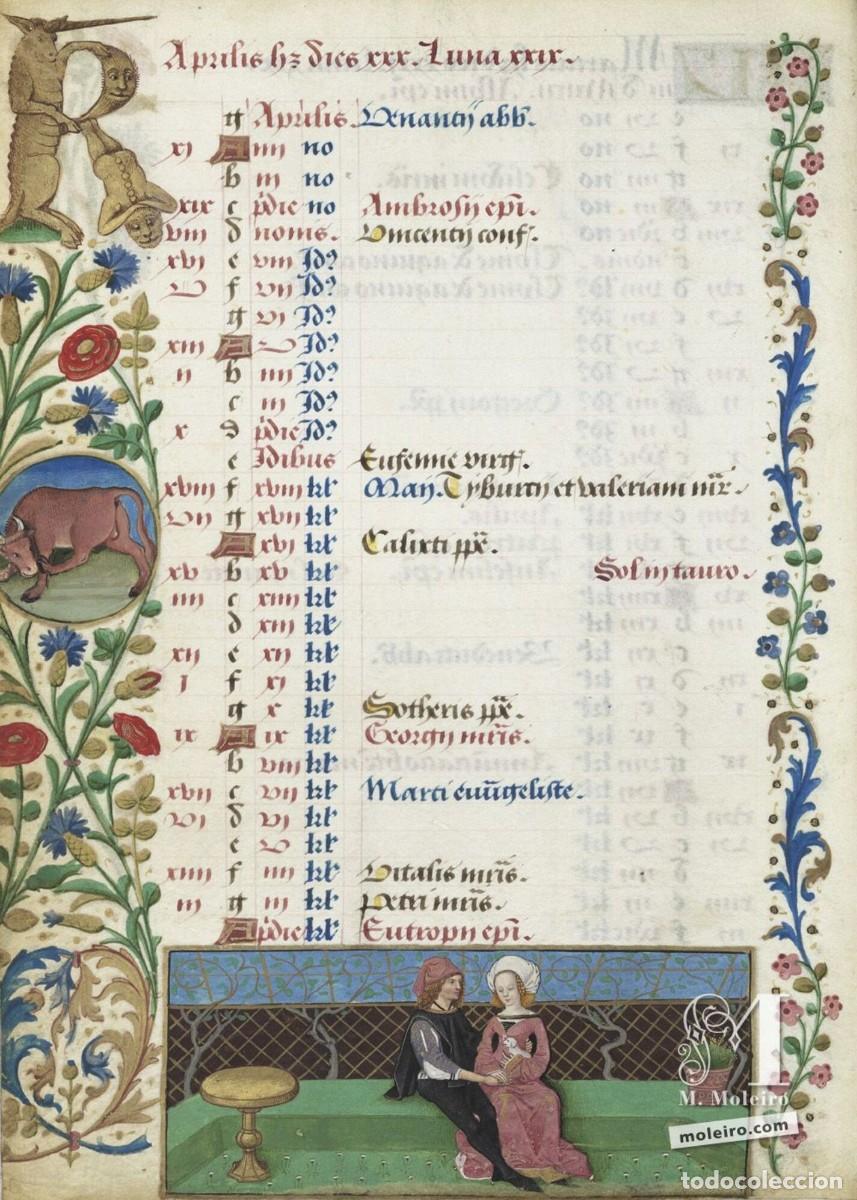 Aprilis hz dies xxx. Luna xxix.
g Aprilis. Venantij abb.
xj A iiij no
b iij no
xix c pdie no Ambrosij epi.
viij d nonis. Vincentij conf.
xvj e viij Id?
v f vij Id?
g vj Id?
xiij A v Id?
ij b iiij Id?
c iij Id?
x d pdie Id?
e Idibus Eufemie virg.
xviij f xviij kl Maij. Tyburtij et valeriani mr.
vij g xvij kl
A xvj kl Calixti ppe.
xv b xv kl Sol in tauro.
iiij c xiiij kl
d xiij kl
xij e xij kl
j f xj kl
g x kl Sotheris ppe.
ix A ix kl Georgij mris.
b viij kl
xvij c vij kl Marci euugeliste.
vj d vj kl
e v kl
xiiij f iiij kl Vitalis mris.
iij g iij kl Petri mris.
A pdie kl Eutropij epi.
M
M. Moleiro
moleiro.com
todocoleccion